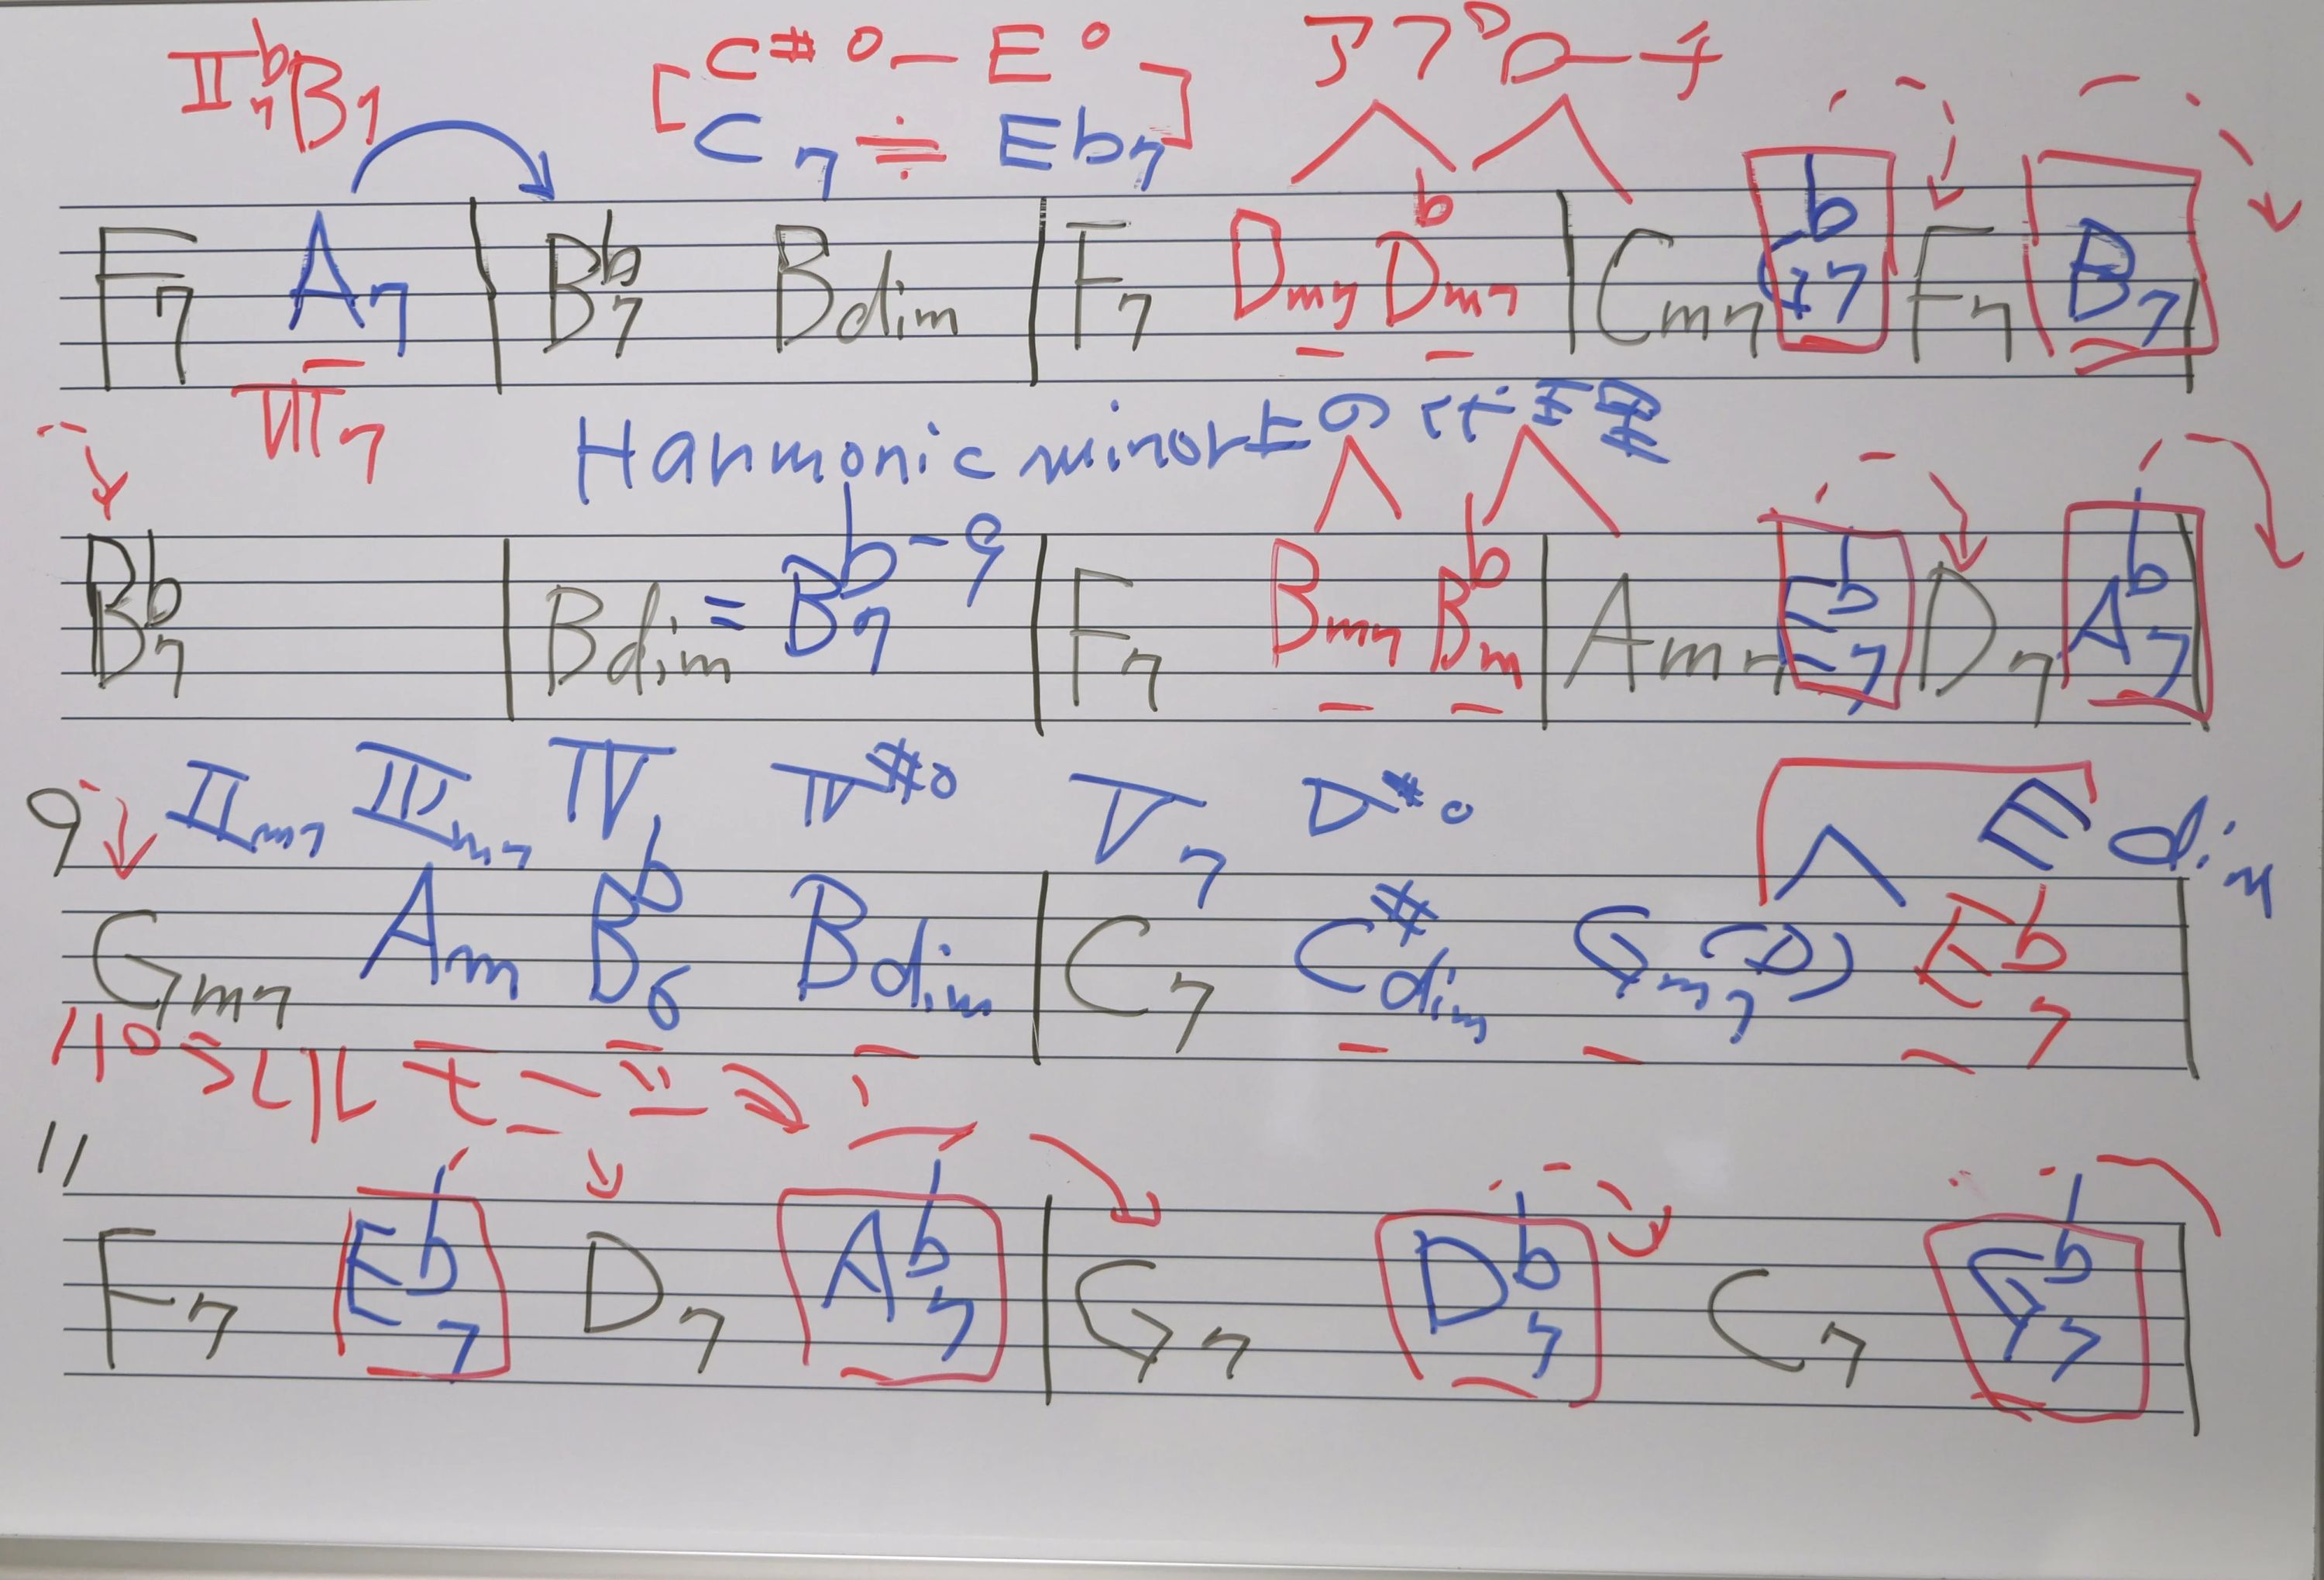 II♭7 B7 [C#o — Eo] アプローチ
C7 ≒ Eb7
F7 A7 B♭7 Bdim F7 Dm7 D♭m7 Cm7 G♭7 F7 B7
III7 Harmonic minor上の代理
B♭7 Bdim = B♭7-9 F7 Bm7 B♭m Am7 E♭7 D7 A♭7
9 IIm7 IIIm7 IV IV#o V7 V#o Edim
Gm7 Am B♭6 Bdim C7 C#dim Gm7(D) E♭7
11
F7 E♭7 D7 A♭7 G7 D♭7 C7 G♭7